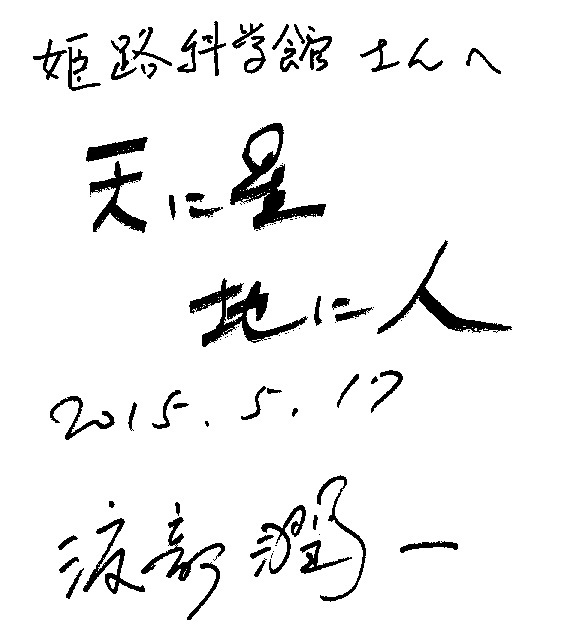 姫路科学館さんへ
天に星
地に人
2015.5.17
渡部潤一